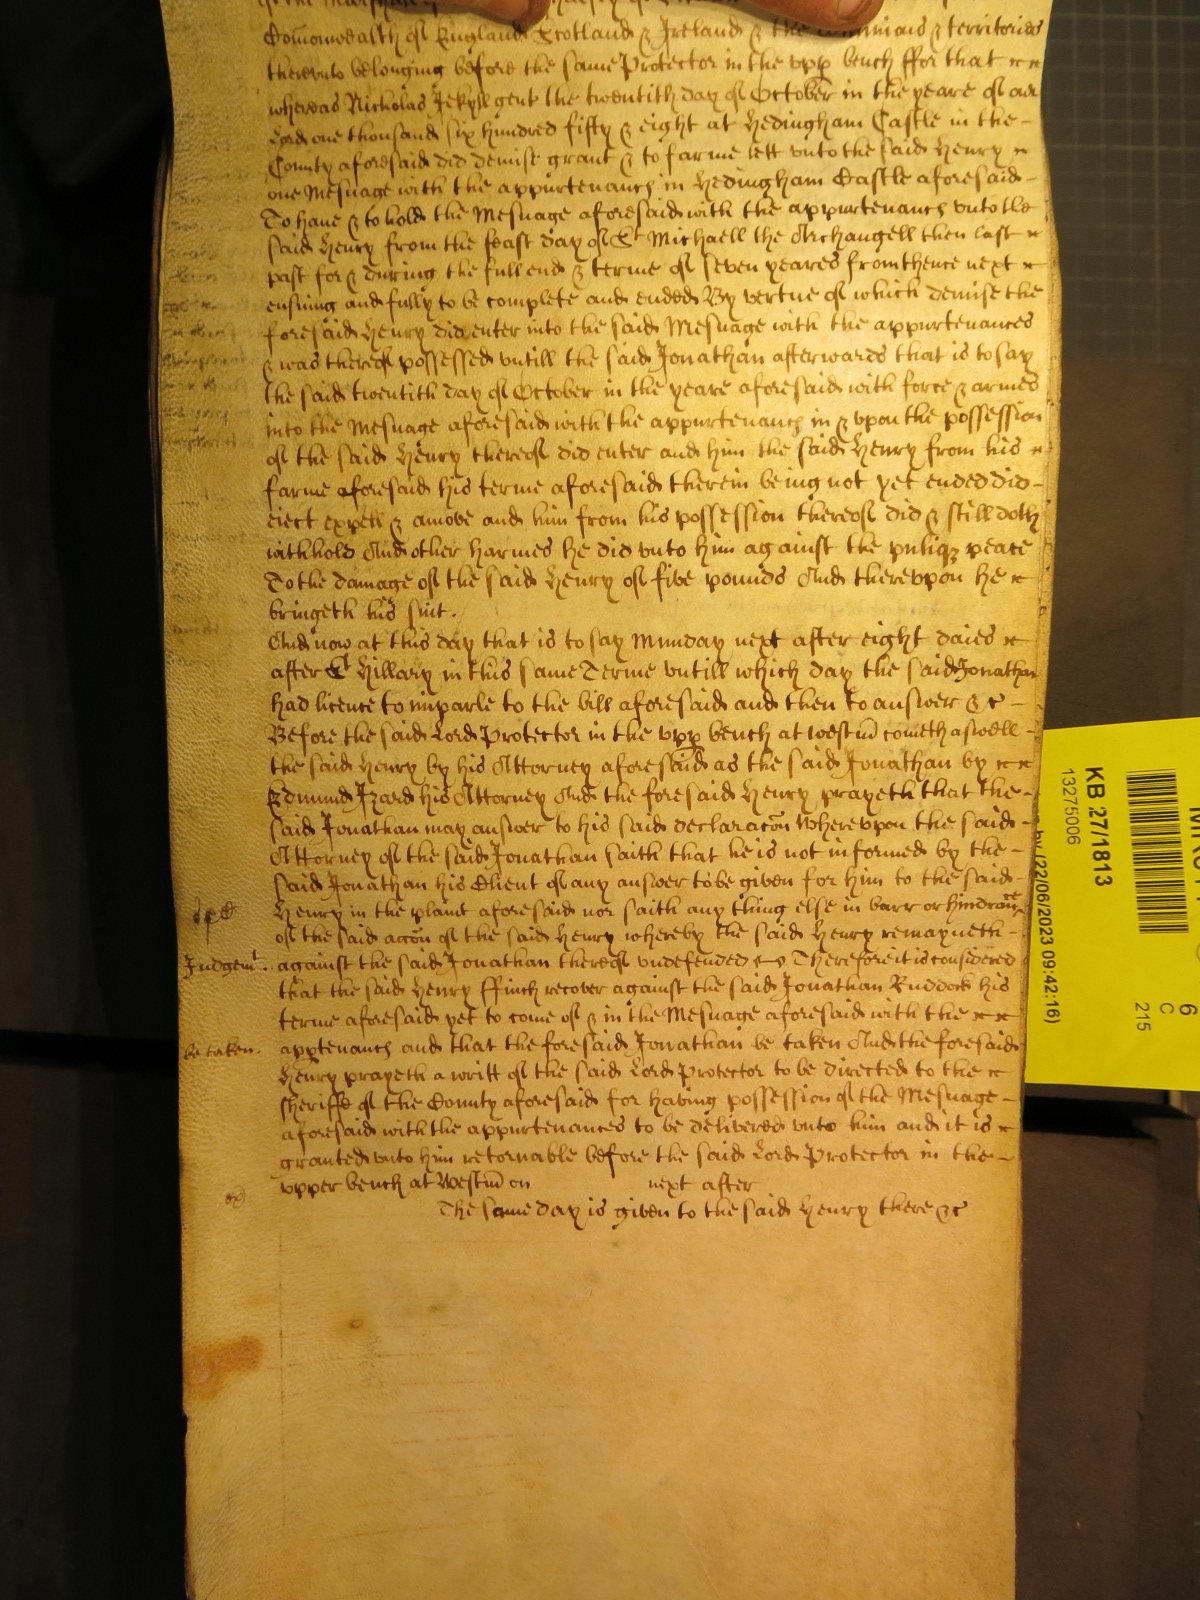 of the Marshalsey
Com̃onwealth of England Scotland & Ireland & the dominions & territories
therevnto belonging before the same Protector in the vpp bench ffor that
whereas Nicholas Jekyll gent the twentith day of October in the yeare of our
Lord one thousand six hundred fifty & eight at Hedingham Castle in the
County aforesaid did demise grant & to farme lett vnto the said Henry
one Mesuage with the appurtenancs in Hedingham Castle aforesaid
To haue & to hold the Mesuage aforesaid with the appurtenancs vnto the
said Henry from the feast day of St Michaell the Archangell then last
past for & during the full end & terme of seven yeares from thence next
ensuing and fully to be complete and ended By vertue of which demise the
foresaid Henry did enter into the said Mesuage with the appurtenances
& was thereof possessed vntill the said Jonathan afterwards that is to say
the said twentith day of October in the yeare aforesaid with force & armes
into the Mesuage aforesaid with the appurtenancs in & vpon the possession
of the said Henry thereof did enter and him the said Henry from his
farme aforesaid his terme aforesaid therein being not yet ended did
eject expell & amove and him from his possession thereof did & still doth
withhold And other harmes he did vnto him against the publiq peace
To the damage of the said Henry of five pounds And therevpon he
bringeth his suit.
And now at this day that is to say Munday next after eight daies
after St Hillary in this same Terme vntill which day the said Jonathan
had licence to imparle to the bill aforesaid and then to answer &c
Before the said Lord Protector in the vpp bench at westm̃ cometh aswell
the said Henry by his Attorney aforesaid as the said Jonathan by
Edmund Izard his Attorney And the foresaid Henry prayeth that the
said Jonathan may answer to his said declaracõn Wherevpon the said
Attorney of the said Jonathan saith that he is not informed by the
said Jonathan his Client of any answer to be given for him to the said
Henry in the plaint aforesaid nor saith any thing else in barr or hindrance
of the said acõn of the said Henry whereby the said Henry remayneth
Judgemt. against the said Jonathan thereof vndefended Therefore it is considered
that the said Henry ffinch recover against the said Jonathan Ruddock his
terme aforesaid yet to come of & in the Mesuage aforesaid with the
be taken. apptenancs and that the foresaid Jonathan be taken And the foresaid
Henry prayeth a writt of the said Lord Protector to be directed to the
sheriffe of the County aforesaid for having possession of the Mesuage
aforesaid with the appurtenances to be delivered vnto him and it is
granted vnto him retornable before the said Lord Protector in the
vpper bench at Westm̃ on next after
The same day is given to the said Henry there &c
KB 27/1813
13275006
(22/06/2023 09:42:16)
6
C
215